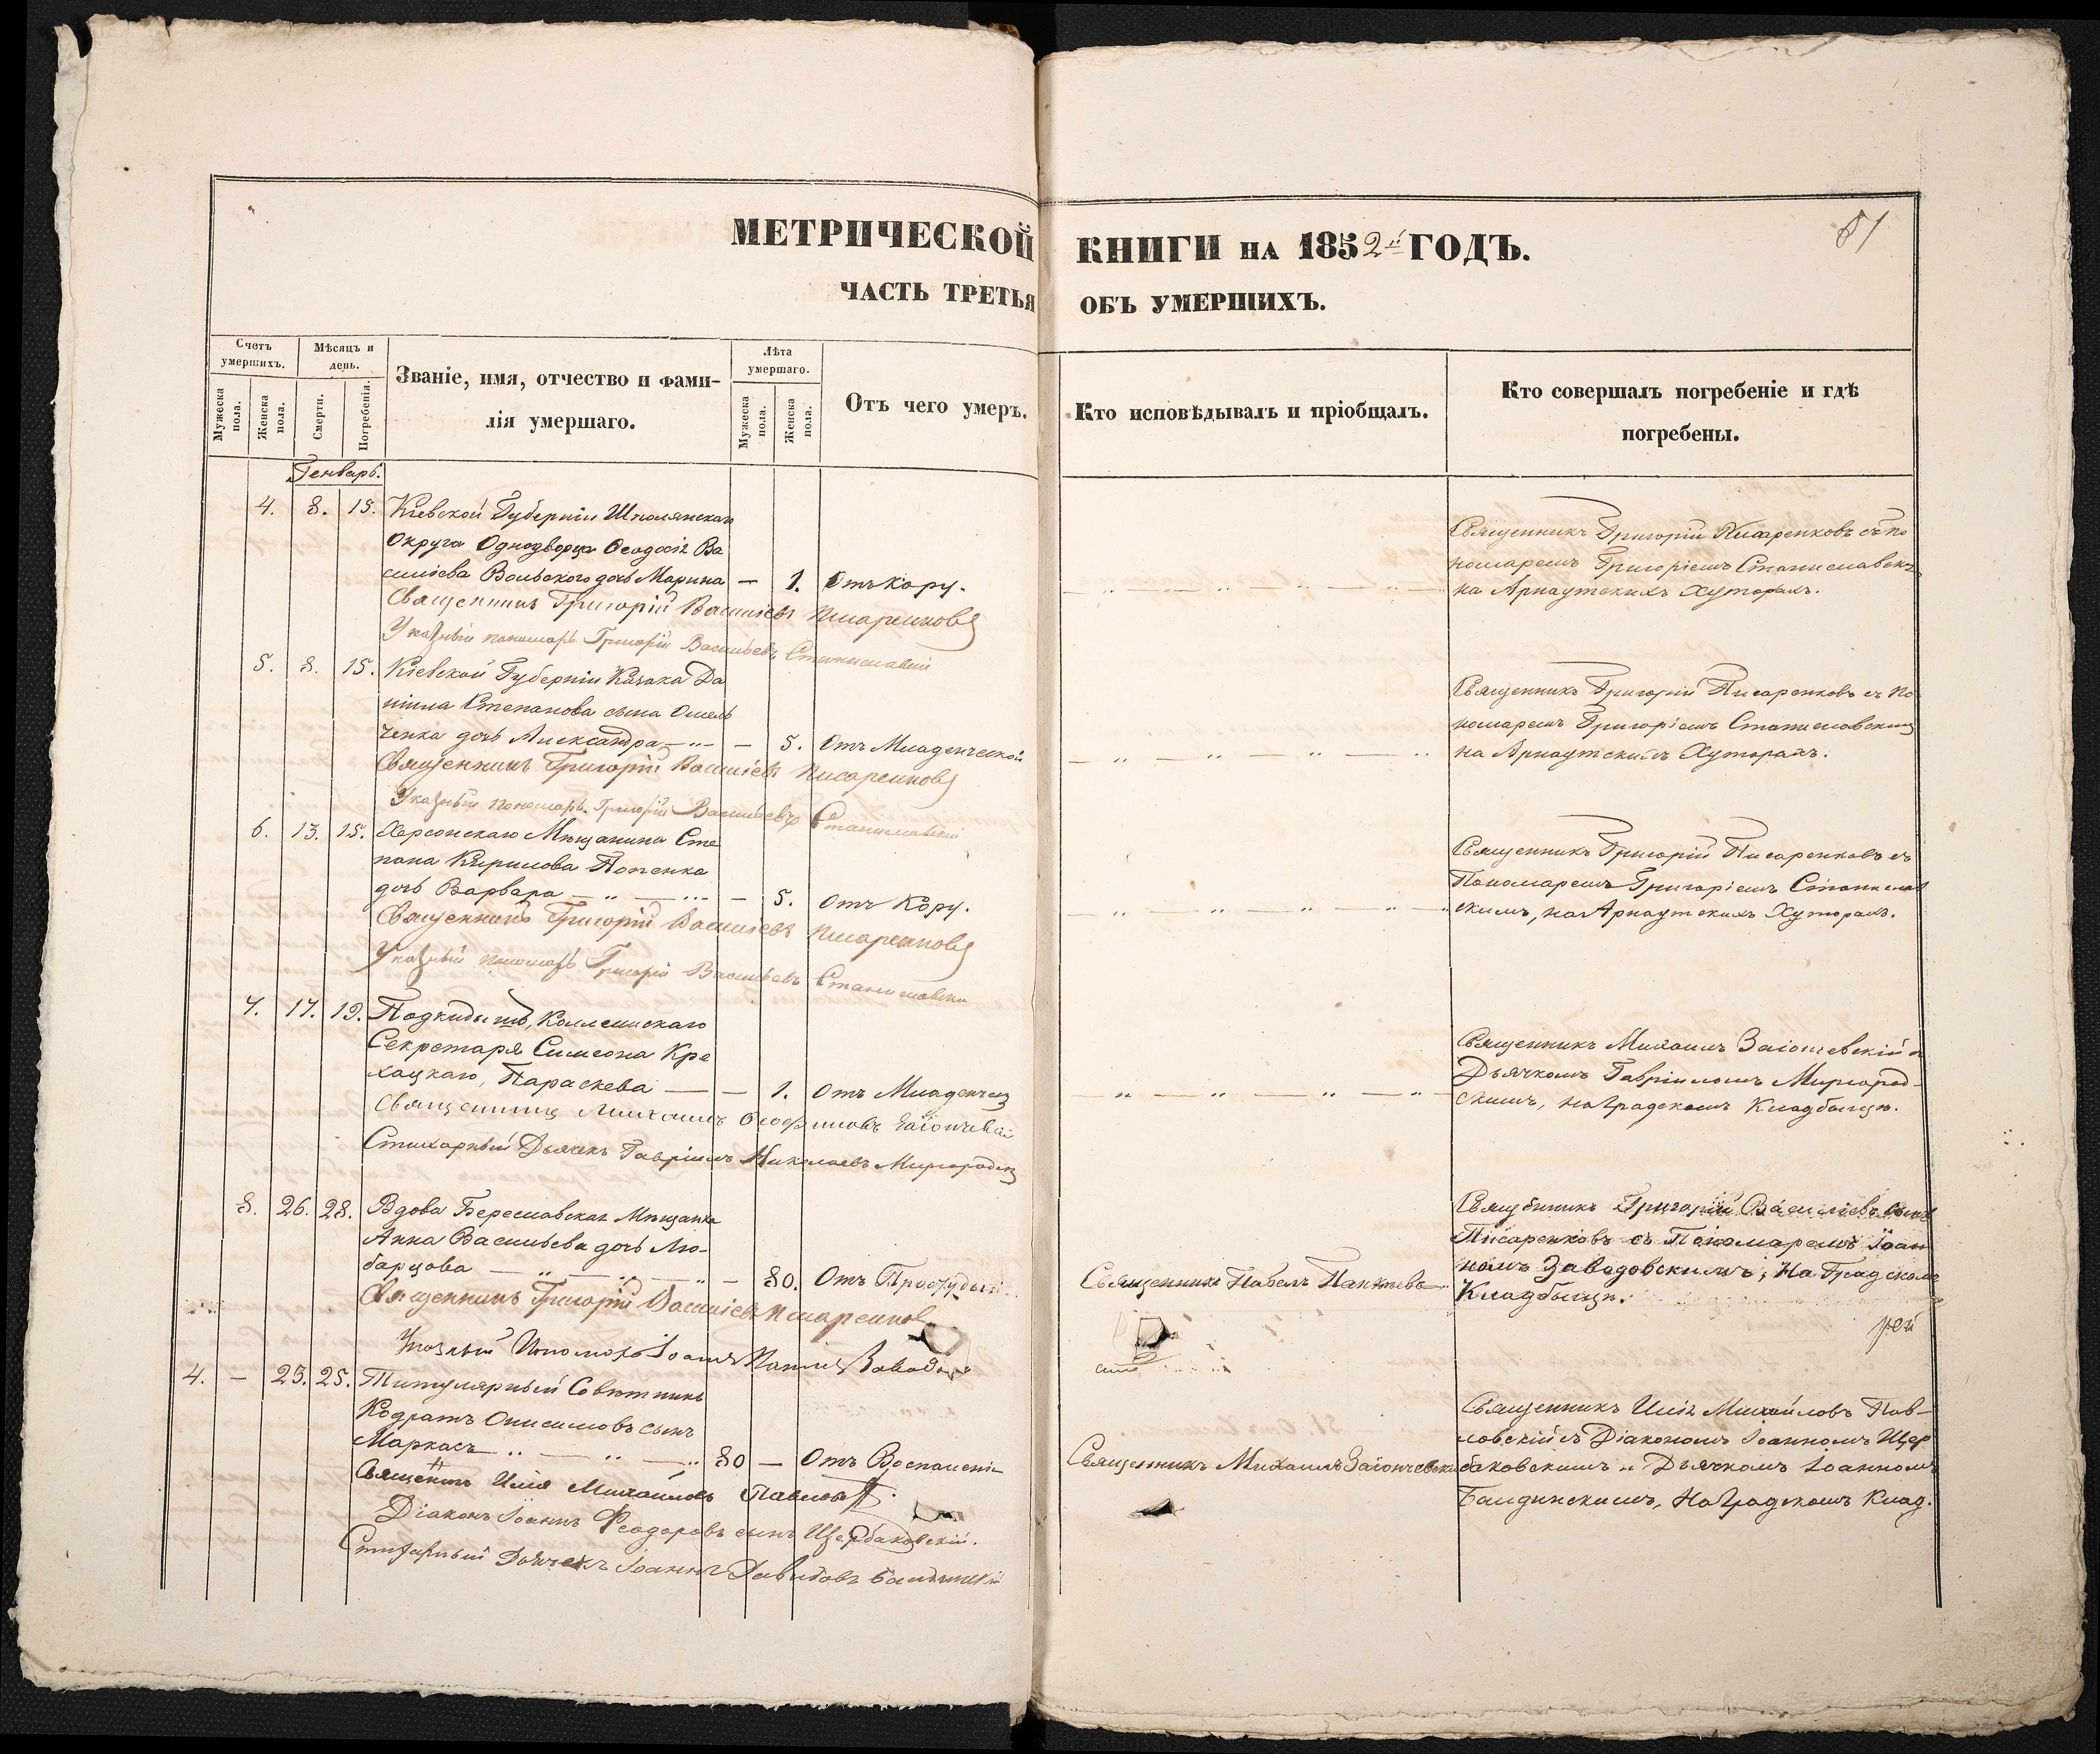 МЕТРИЧЕСКОЙ КНИГИ НА 1852й ГОДЪ.
81
ЧАСТЬ ТРЕТЬЯ ОБЪ УМЕРШИХЪ.
Счетъ умершихъ.
Мужеска пола.
Женска пола.
Мѣсяцъ и день.
Смерти.
Погребенія.
Званіе, имя, отчество и фами-
лія умершаго.
Лѣта умершаго.
Мужеска пола.
Женска пола.
Отъ чего умеръ.
Кто исповѣдывалъ и пріобщалъ.
Кто совершалъ погребеніе и гдѣ
погребены.
Генварь.
4. 8. 15. Кіевской Губерніи Шполянскаго
Округа Однодворца Ѳеодосія Ва
силіева Вольского дочь Марина — 1. Отъ Кору.
Священникъ Григорій Писаренковъ съ по
номаремъ Григоріемъ Станиславскимъ
на Арнаутскихъ Хуторахъ.
Священникъ Григорій Василіевъ Писаренковъ
Указный пономарь Григорій Васильевъ Станиславскій
5. 8. 15. Кіевской Губерніи Казака Да
ніила Степанова сына Омель
ченка дочь Александра — 5. Отъ Младенческой
Священникъ Григорій Писаренковъ съ По
номаремъ Григоріемъ Станиславскимъ
на Арнаутскихъ Хуторахъ.
Священникъ Григорій Василіевъ Писаренковъ
Указный пономарь Григорій Васильевъ Станиславскій
6. 13. 15. Херсонскаго Мѣщанина Сте
пана Кирилова Попенка
дочь Варвара — 5. Отъ Кору.
Священникъ Григорій Писаренковъ съ
Пономаремъ Григоріемъ Станислав
скимъ, на Арнаутскихъ Хуторахъ.
Священникъ Григорій Василіевъ Писаренковъ
Указный пономарь Григорій Васильевъ Станиславскій
7. 17. 19. Подкидышъ, Коллежскаго
Секретаря Симеона Кре
хацкаго, Параскева — 1. Отъ Младенчес
Священникъ Михаилъ Заіончевскій съ
Дьячкомъ Гавріиломъ Миргород-
скимъ, на Градскомъ Кладбищѣ.
Священникъ Михаилъ Заіончевскій
Стихарный Дьячекъ Гавріилъ Николаевъ Миргородскій
8. 26. 28. Вдова Береславская Мѣщанка
Анна Васильева дочь Лю-
барцова — 80. Отъ Простуды
Священникъ Павелъ
Священникъ Григорій Василіевъ сынъ
Писаренковъ съ Пономаремъ Іоан
номъ Заводовскимъ, на Градскомъ
Кладбищѣ.
Священникъ Григорій Василіевъ Писаренковъ
Указный Пономарь Іоаннъ
4. — 23. 25. Титулярный Совѣтникъ
Кодратъ Онисимовъ сынъ
Маркасъ 80 — Отъ Воспаленія
Священникъ Михаилъ Заіончевскій
Священникъ Илія Михайловъ Пав-
ловскій съ Діакономъ Іоанномъ Щер
баковскимъ и Дьячкомъ Іоанномъ
Балдинскимъ, на Градскомъ Клад.
Священникъ Илія Михайловъ Павловскій
Діаконъ Іоаннъ Ѳеодоровъ сынъ Щербаковскій.
Стихарный Дьячекъ Іоаннъ Давидовъ Балдинскій